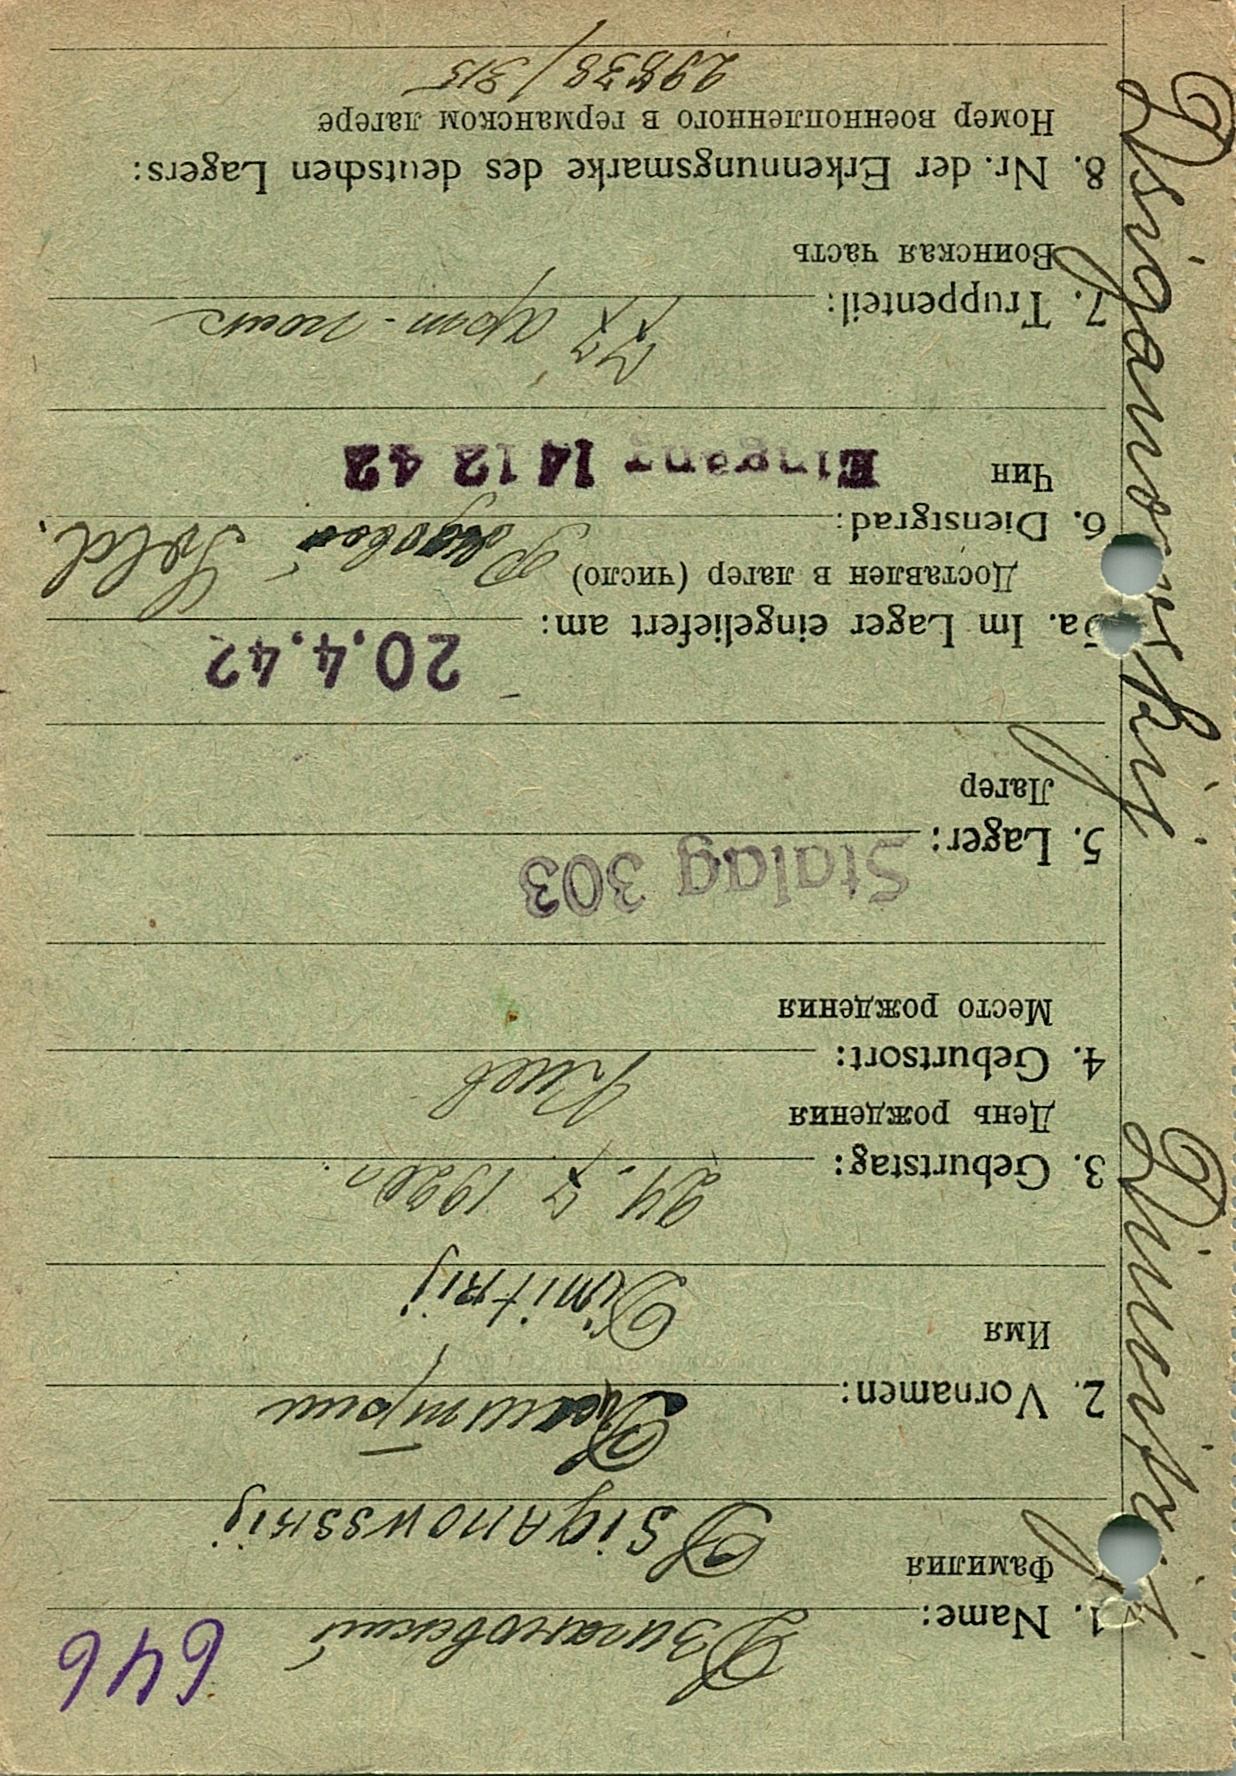 646
1. Name: Дзигановский
Фамилия
Dsiganowsskij
2. Vornamen: Дмитрий
Имя
Dimitrij
3. Geburtstag: 24. 7 1920
День рождения
4. Geburtsort: Киев
Место рождения
5. Lager: Stalag 303
Лагер
5a. Im Lager eingeliefert am: 20.4.42
Доставлен в лагер (число)
6. Dienstgrad: Рядовой Sold.
Чин
Eingang 14 12 42
7. Truppenteil: 77 арт.
Воинская часть
8. Nr. der Erkennungsmarke des deutschen Lagers:
Номер военнопленного в германском лагере
29838/315
Dsiganowsskij Dimitrij